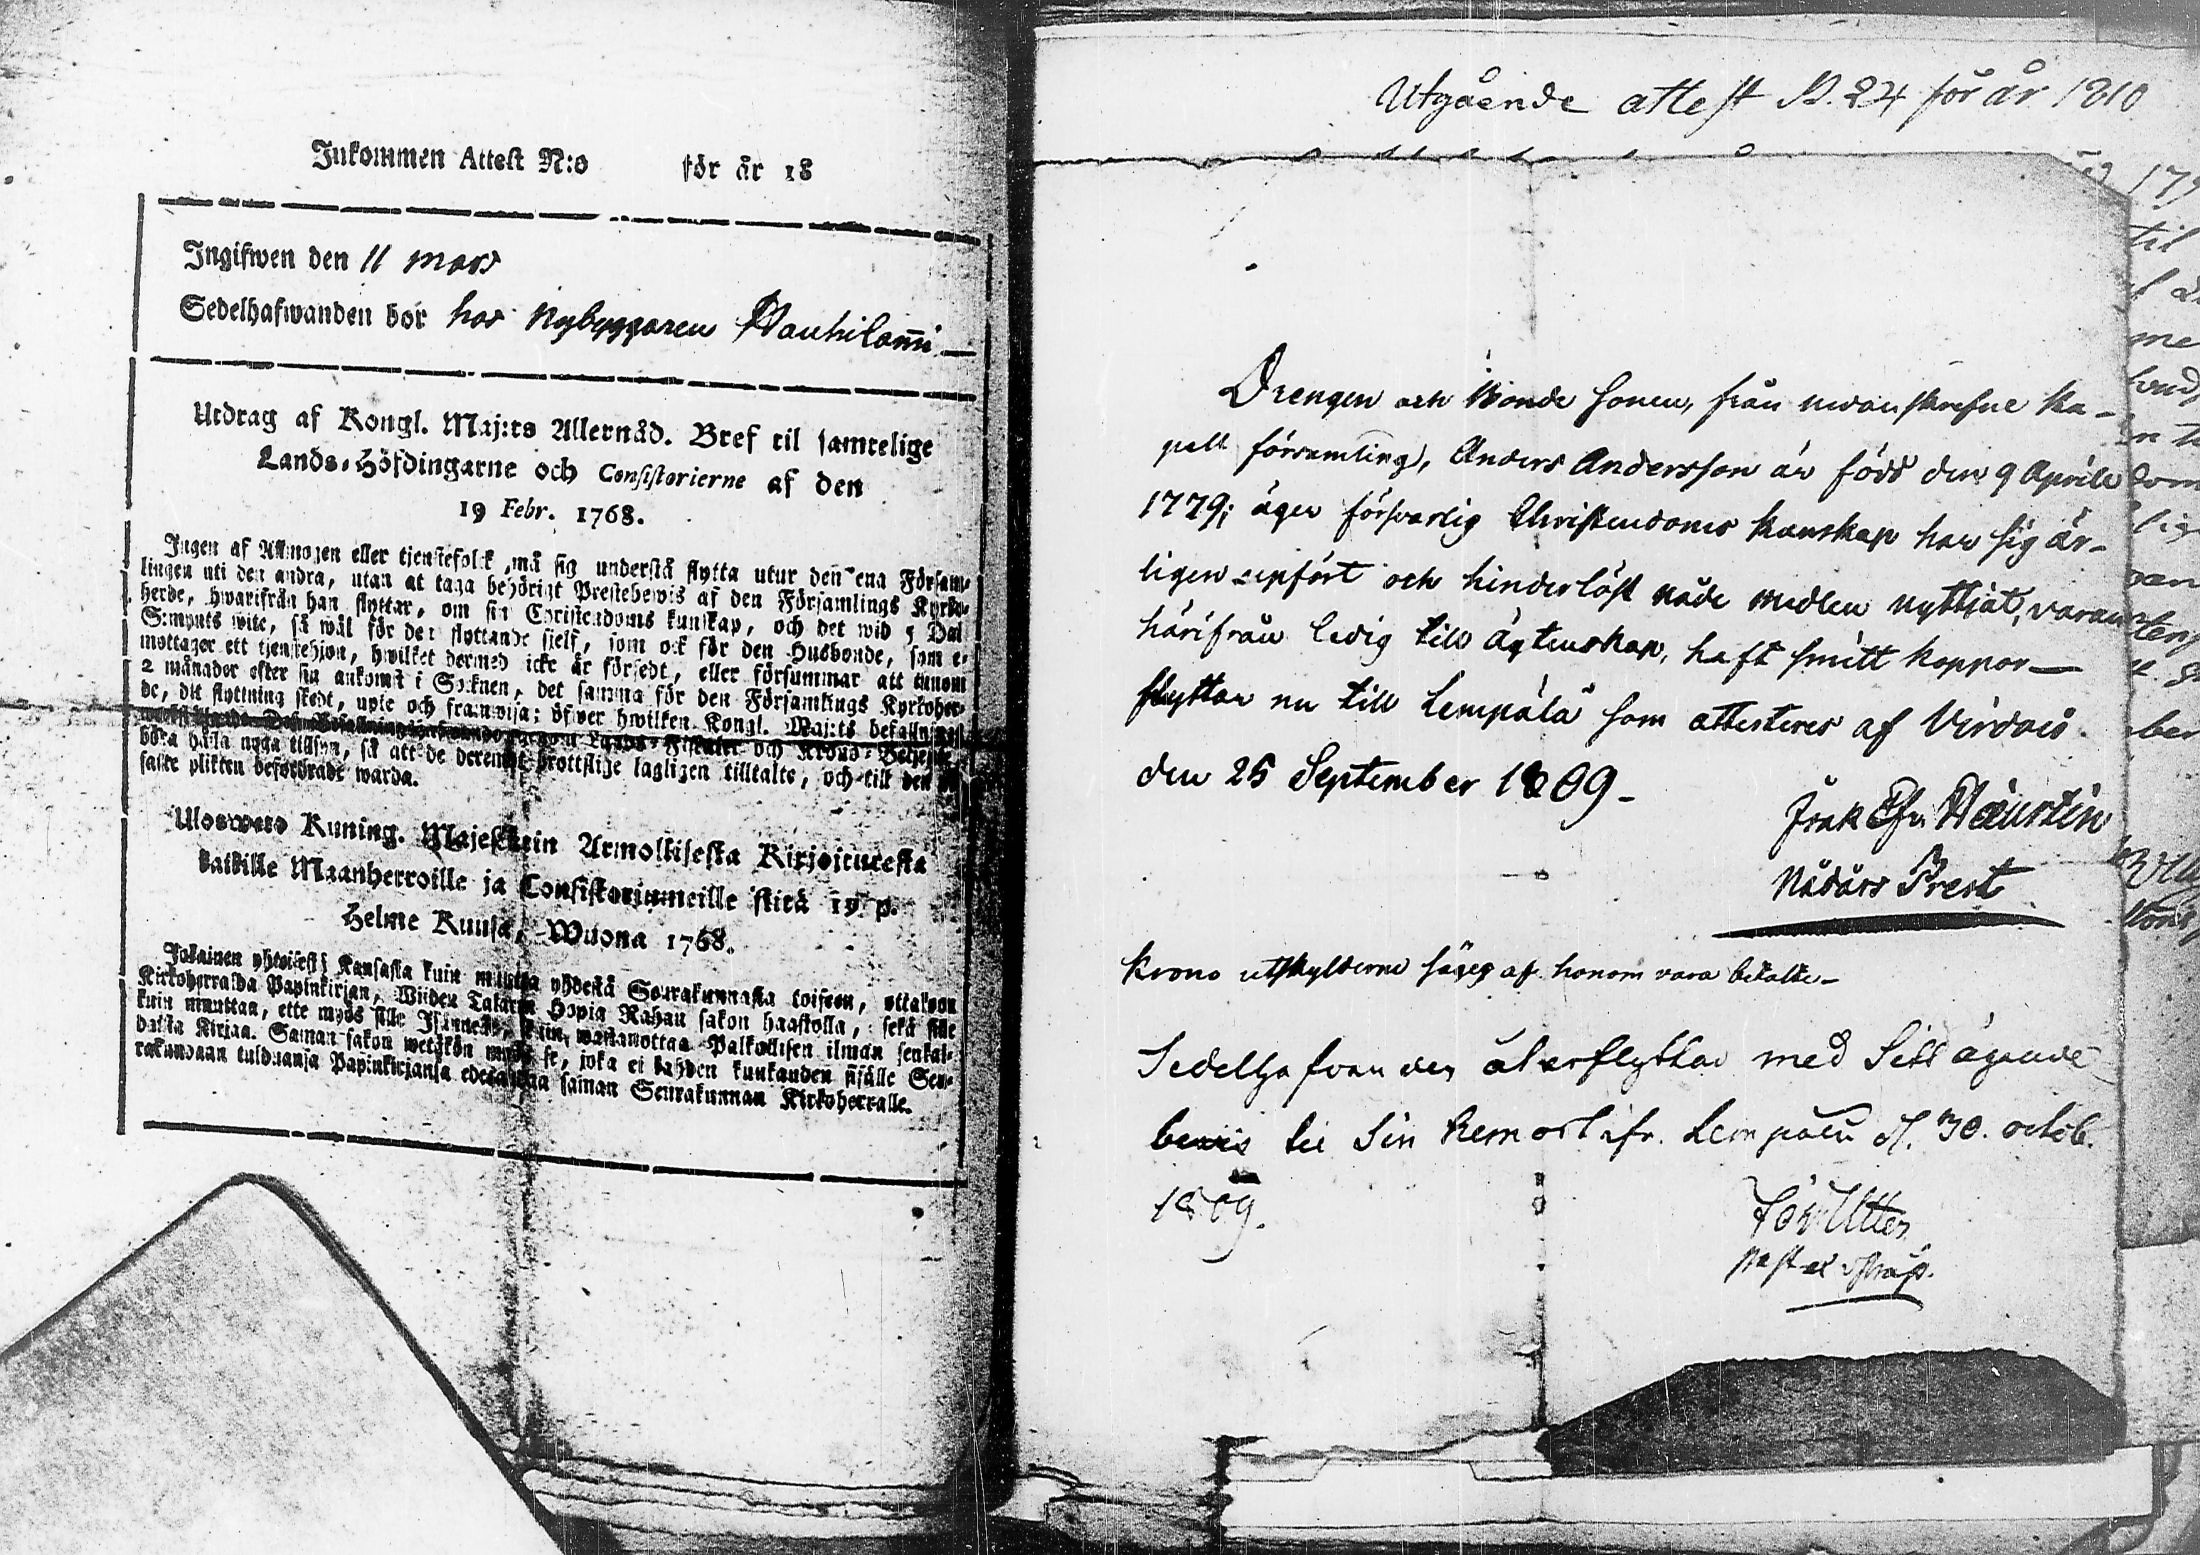 Inkommen Attest N:o för år 18
Ingifwen den 11 mars
Sedelhafwanden bor hos Nybyggaren Hauhilam̄i
Utdrag af Kongl. Maj:ts Allernåd. Bref til samtelige
Lands-Höfdingarne och Consistorierne af den
19 Febr. 1768.
Ingen af Allmogen eller tjenstefolck må sig understå flytta utur den ena Försam-
lingen uti den andra, utan at taga behörigt Prestebewis af den Församlings Kyrko-
herde, hwarifrån han flyttar, om sin Christendoms kunskap, och det wid 5 Dal.
S:mynts wite, så wäl för den flyttande sielf, som ock för den Husbonde, som e-
mottager ett tjenstehjon, hwilket dermed icke är försedt, eller försummar att innom
2 månader efter sin ankomst i Socknen, det samma för den Församlings Kyrkoher-
de, dit flyttning skedt, upte och framwisa; öfwer hwilken Kongl. Maj:ts befallning
Lands-Fiskaler och Krono-Betjente
böra hålla noga tillsyn, så att de deremot brottslige lagligen tilltalte, och till den
saste plikten befordrade warda.
Ulosweto Kuning. Majestetin Armollisesta Kirjoituresta
kaikille Maanherroille ja Consistoriumeille siitä 19 p.
Helme Kuusa, Wuona 1768.
Jokainen yhteisest Kansasta kuin muutta yhdestä Seurakunnasta toiseen, ottakoon
Kirkoherralda Papinkirjan, Wiiden Talarin Hopia Rahan sakon haastolla, sekä sille
kuin muuttaa, ette myös sille Isännelle, kuin wastanottaa Palkollisen ilman senkal-
daista Kirjaa. Saman sakon wetäkön myös se, joka ei kahden kuukauden sisälle Seu-
rakundaan tulduansa Papinkirjansa edesanna saman Seurakunnan Kirkoherralle.
Utgående attest N. 24 för år 1810
Drengen och Bonde sonen, från nedanskrefne Ka-
pell församling, Anders Andersson är född den 9 Aprill
1779; äger försvarlig Christendoms kunskap har sig är-
ligen upfört och hinderlöst nåde medlen nyttjat, varan
härifrån ledig till ägtenskap, haft smitt koppor —
flyttar nu till Lempälä som attesteres af Virdois
den 25 September 1809 –
Nådårs Prest
Krono utskylderne säges af honom vara betalte –
Sedelhafvanden återflyttar med Sitt ägande
bevis till Sin hemort ifr. Lempälä d. 30. octob.
1809.